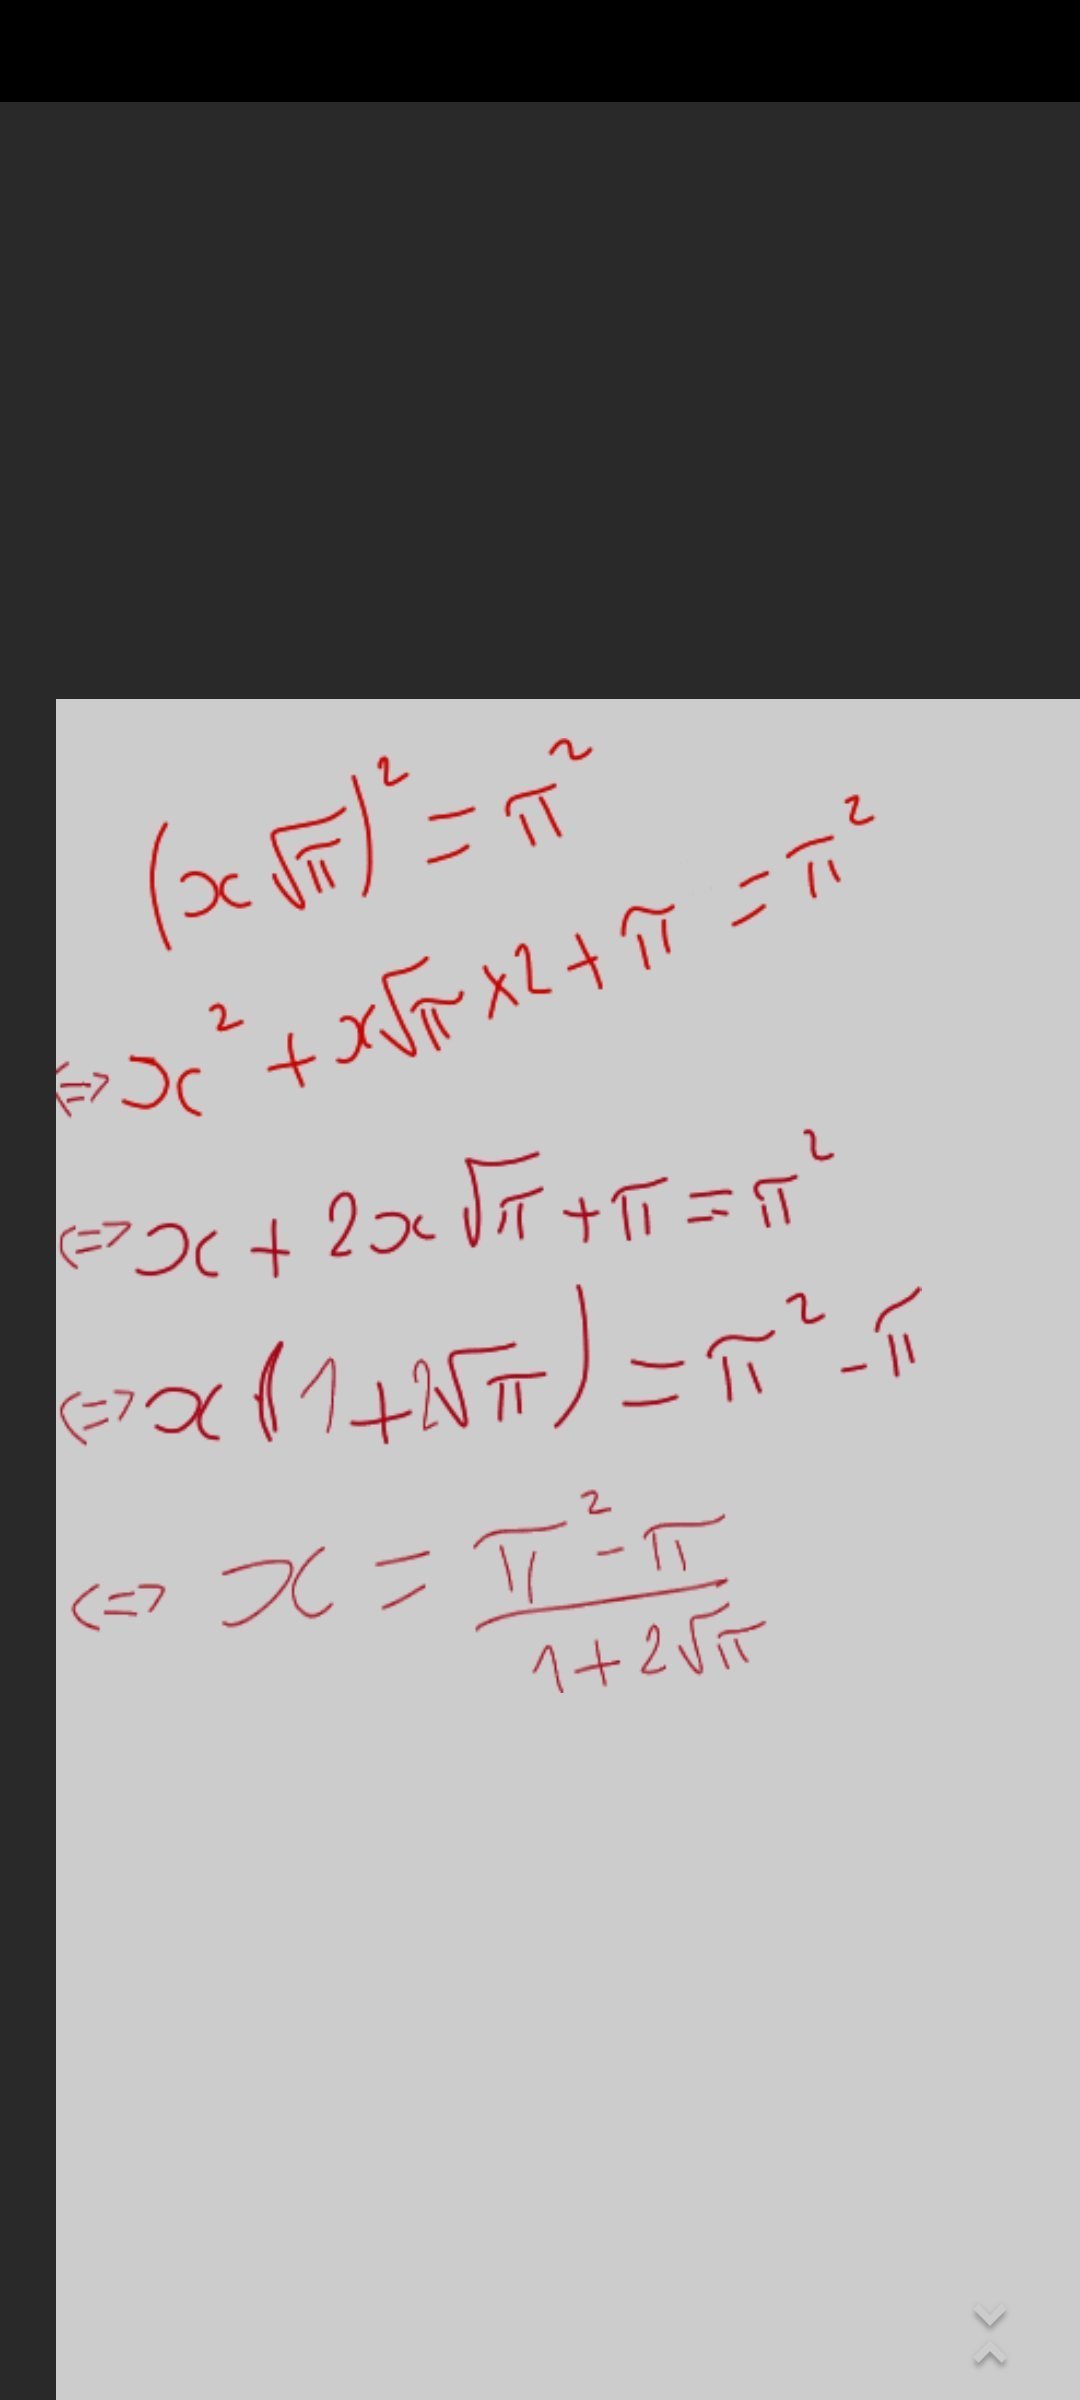 (x√π)² = π²
<=> x² + x√π × 2 + π = π²
<=> x + 2x√π + π = π²
<=> x(1 + 2√π) = π² - π
<=> x = (π² - π)/(1 + 2√π)